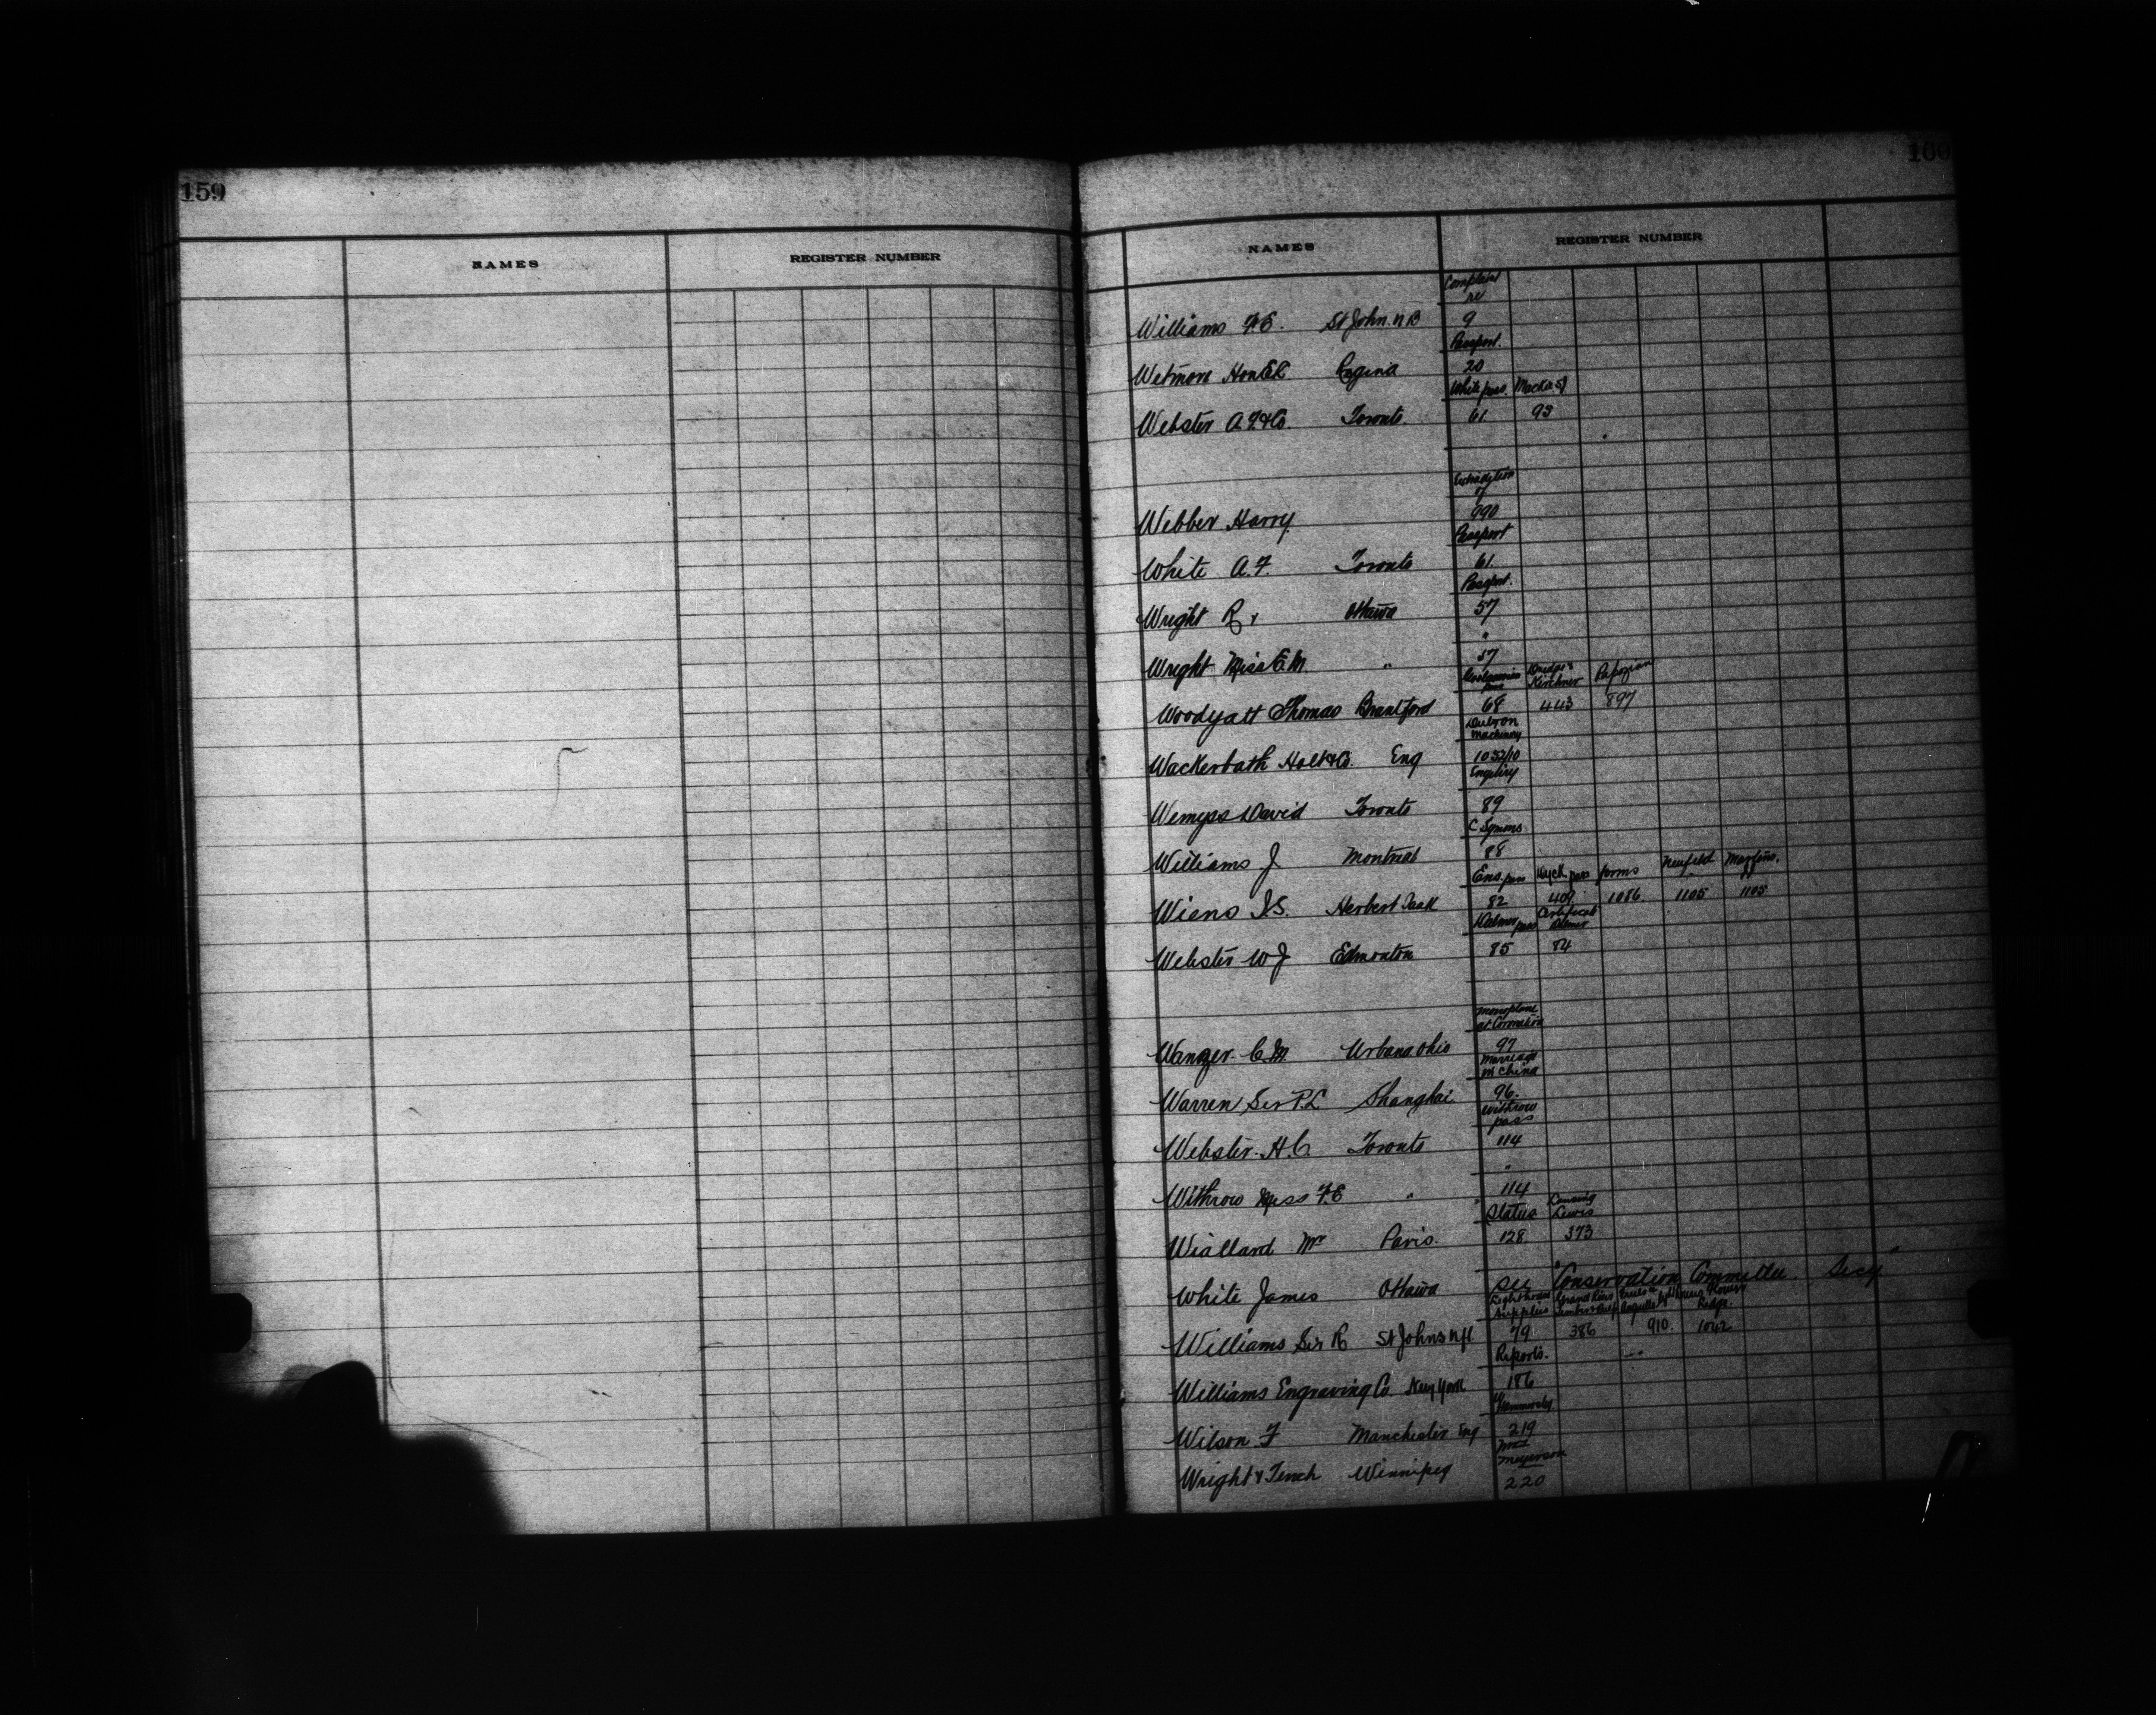 159
NAMES
REGISTER NUMBER
160
NAMES
REGISTER NUMBER
Complaint
re
Williams F.E. St John. N B 9
Passport.
Wetmore Hon E L Regina 20
White pass. Macka
Webster A. F. & Co. Toronto. 61. 93
Extradition
of
Webber Harry 990
Passport
White A. F. Toronto 61.
Passport.
Wright R Ottawa 57
"
Wright Miss E. M. " 57
Kirchner
Woodyatt Thomas Brantford 68 443 897
Machinery
Wackerbath Holt & Co. Eng 1052/10
Enquiry
Wemyss David Toronto 89
C Symons
Williams J. Montreal 88
Ens. pass Dyck pass forms Neufeld Martens.
Wiens I. S. Herbert Sask 82 409 1086 1105 1105
pass Certificate
Webster W J Edmonton 85 84
Monoplane
at Coronation
Wanzer C. M. Urbana Ohio 97
Marriage
in China
Warren Sir P. L Shanghai 96.
Withrow
pass
Webster H. C Toronto 114
"
Withrow Miss F. E " 114
Status Lewis
Wiallard Mr Paris. 128 373
White James Ottawa See "Conservation Committee Secy"
Lighthouse
Supplies
Williams Sir R St Johns Nfl 79 386 910. 1042
Reports.
Williams Engraving Co. New York 186
Wilson F Manchester Eng 219
Meyerson
Wright & Tench Winnipeg 220